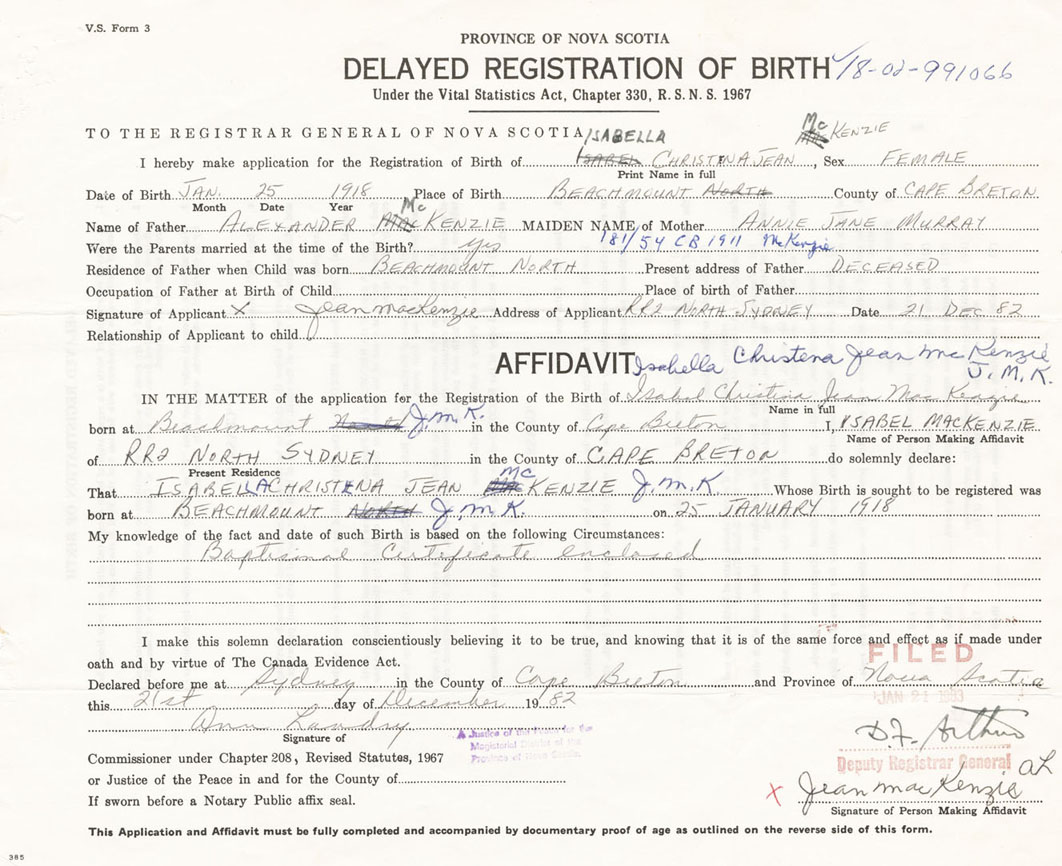 V.S. Form 3
PROVINCE OF NOVA SCOTIA
DELAYED REGISTRATION OF BIRTH 18-02-991066
Under the Vital Statistics Act, Chapter 330, R.S.N.S. 1967
TO THE REGISTRAR GENERAL OF NOVA SCOTIA ISABELLA Mc KENZIE
I hereby make application for the Registration of Birth of ISABEL CHRISTENA JEAN, Sex FEMALE
Print Name in full
Date of Birth JAN. 25 1918 Place of Birth BEACHMOUNT NORTH County of CAPE BRETON
Month Date Year Mc
Name of Father ALEXANDER Mac KENZIE MAIDEN NAME of Mother ANNIE JANE MURRAY
Were the Parents married at the time of the Birth? Yes 181/54 CB 1911 McKenzie
Residence of Father when Child was born BEACHMOUNT NORTH Present address of Father DECEASED
Occupation of Father at Birth of Child Place of birth of Father
Signature of Applicant X Jean MacKenzie Address of Applicant RR2 NORTH SYDNEY Date 21 DEC 82
Relationship of Applicant to child
AFFIDAVIT Isabella Christena Jean Mc Kenzie
J.M.K.
IN THE MATTER of the application for the Registration of the Birth of Isabel Christina Jean MacKenzie
Name in full
born at Beachmount J.M.K. in the County of Cape Breton I, ISABEL MACKENZIE
Name of Person Making Affidavit
of RR2 NORTH SYDNEY in the County of CAPE BRETON do solemnly declare:
Present Residence MC
That ISABELLA CHRISTENA JEAN KENZIE J.M.K Whose Birth is sought to be registered was
born at BEACHMOUNT NORTH J.M.K. on 25 JANUARY 1918
My knowledge of the fact and date of such Birth is based on the following Circumstances:
Baptismal Certificate enclosed
I make this solemn declaration conscientiously believing it to be true, and knowing that it is of the same force and effect as if made under
oath and by virtue of The Canada Evidence Act.
FILED
Declared before me at Sydney in the County of Cape Breton and Province of Nova Scotia
JAN 21 1983
this 21st day of December 1982
Ann Landry
Signature of
A Justice of the Peace for the
Magisterial District of the
Province of Nova Scotia
D.F. Arthur
Commissioner under Chapter 208, Revised Statutes, 1967
Deputy Registrar General aL
or Justice of the Peace in and for the County of
X Jean MacKenzie
If sworn before a Notary Public affix seal.
Signature of Person Making Affidavit
This Application and Affidavit must be fully completed and accompanied by documentary proof of age as outlined on the reverse side of this form.
385